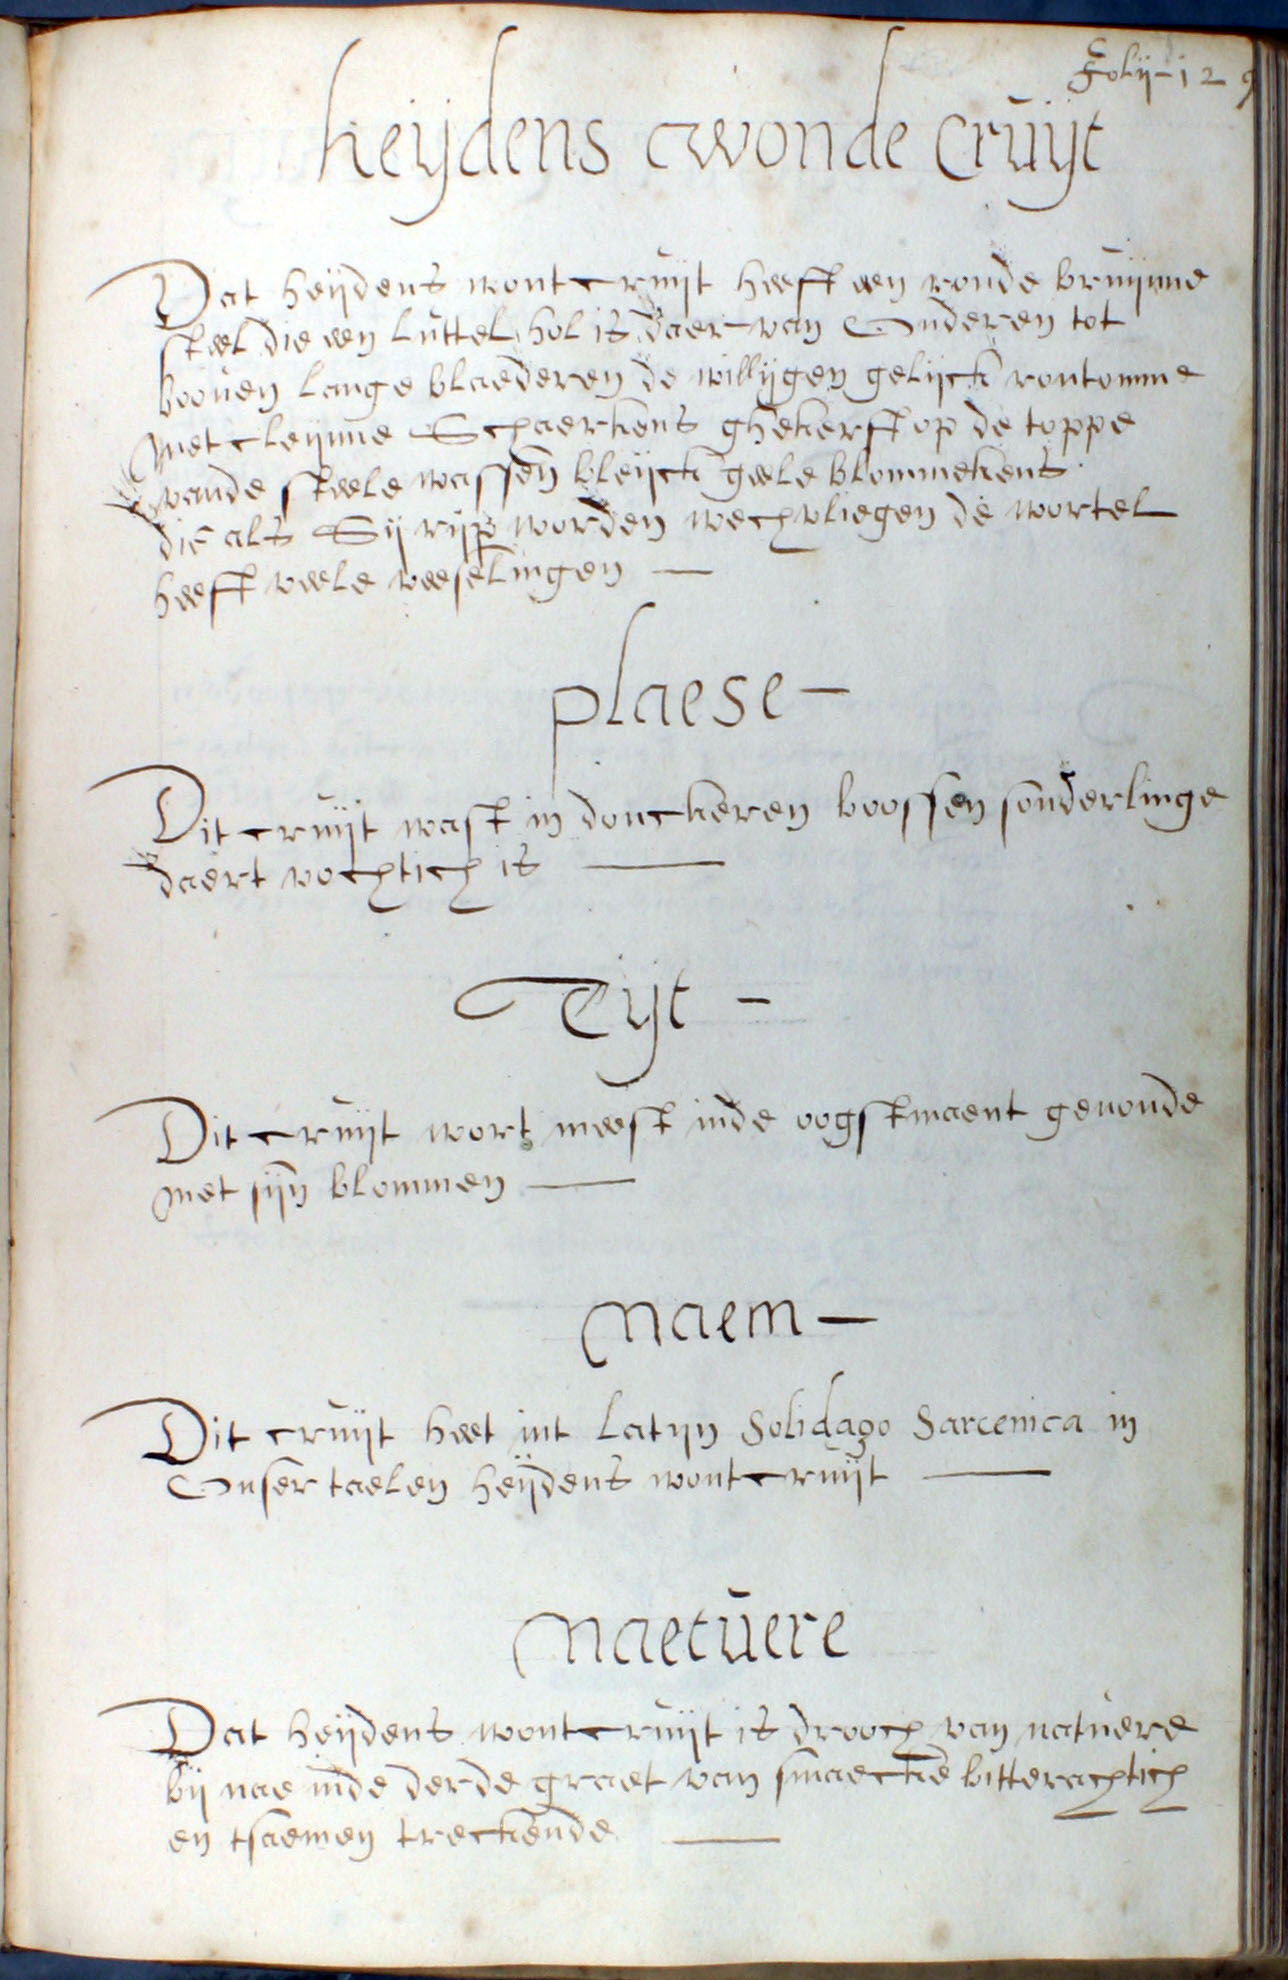 Folij-129
heijdens wonde Cruijt
Dat heijdens wontcruijt heeft een ronde bruijnne
steel die een luttel hol is daer van Onderen tot
booven lange blaederen de willijgen gelijck rontomme
met cleijnne Schaerkens ghekerft op de toppe
vande steele wassen bleijck geele blommekens
die als Sij rijp worden wechvliegen de wortel
heeft veele veeselingen —
plaese —
Dit cruijt wast in donckeren boossen sonderlinge
daert vochtich is —
Tijt —
Dit cruijt wort meest inde oogstmaent gevonde
met sijn blommen —
Naem —
Dit cruijt heet int Latijn Solidago Sarcenica in
Onser taelen heijdens wontcruijt —
Naetuere
Dat heijdens wontcruijt is drooch van natuere
bij nae inde derde graet van smaecke bitterachtich
en tsaemen treckende —